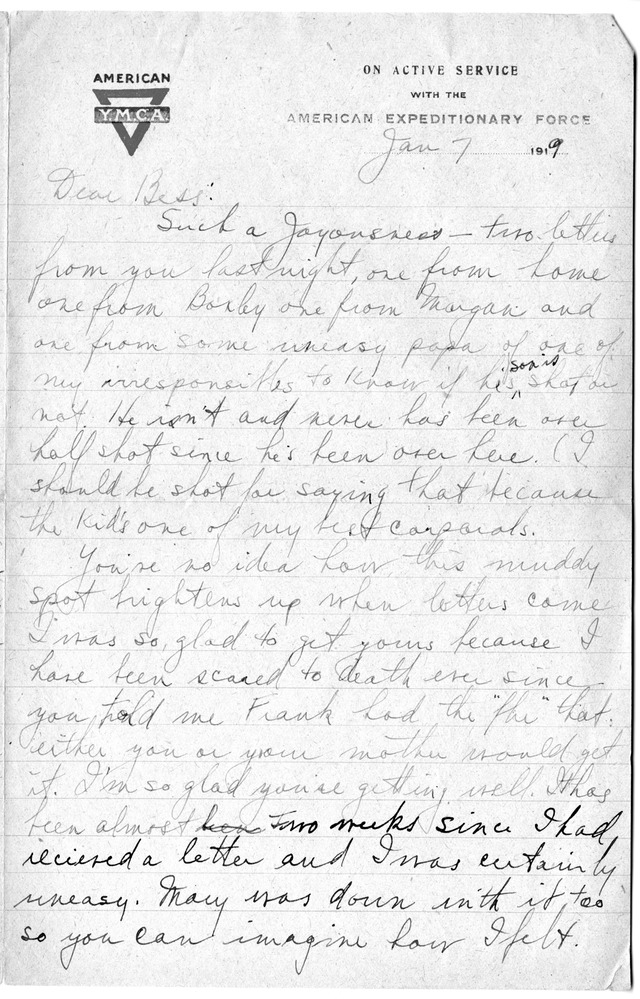 AMERICAN
Y.M.C.A.
ON ACTIVE SERVICE
WITH THE
AMERICAN EXPEDITIONARY FORCE
Jan 7 1919
Dear Bess:
Such a Joyousness — two letters
from you last night, one from home
one from Boxley one from Morgan and
one from some uneasy papa of one of
my irresponsibles to know if he's son is shot or
not. He isn't and never has been over
half shot since he's been over here. (I
should be shot for saying that because
the kid's one of my best corporals.
You've no idea how this muddy
spot brightens up when letters come
I was so glad to get yours because I
have been scared to death ever since
you told me Frank had the "flu" that
either you or your mother would get
it. I'm so glad you're getting well. It has
been almost two weeks since I had
recieved a letter and I was certainly
uneasy. Mary was down with it too
so you can imagine how I felt.